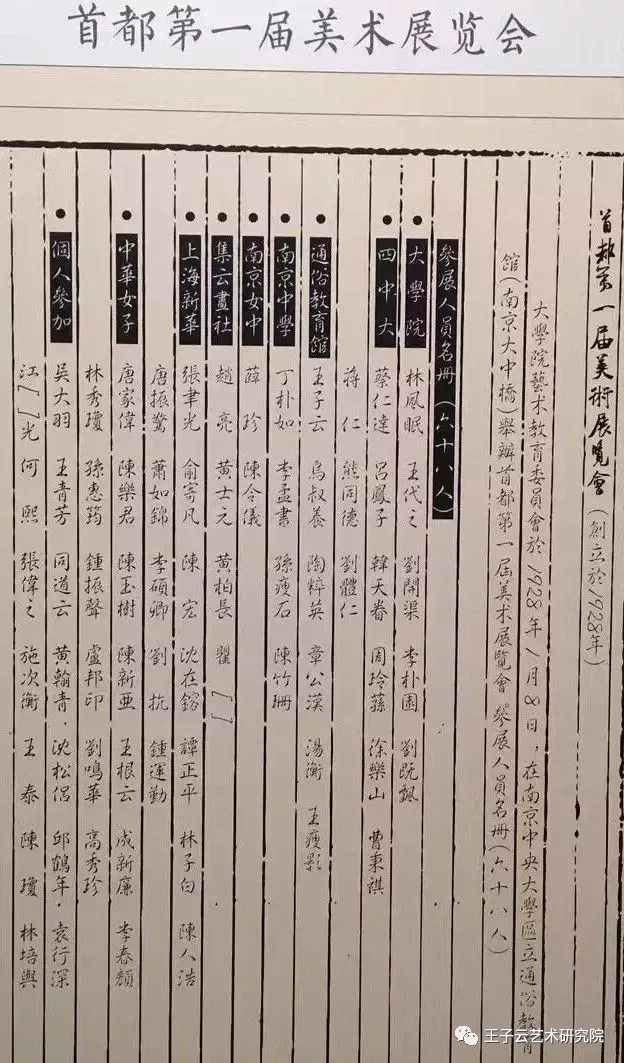 首都第一届美术展览会
首都第一届美術展覽會(創立於1928年)
大學院藝术教育委員會於1928年1月8日,在南京中央大學區立通俗教育
館(南京大中橋)舉辦首都第一屆美术展覽會。參展人員名冊(六十八人)
參展人員名冊(六十八人)
●大學院 林风眠 王代之 劉開渠 李朴園 劉既飄
●四中大 蔡仁達 呂鳳子 韓天眷 周玲蓀 徐樂山 曹秉祺
蔣仁 熊同德 劉體仁
●通俗教育館 王子云 烏叔養 陶粹英 章公漢 湯衡 王瘦影
●南京中學 丁朴如 李孟書 孫瘦石 陳竹珊
●南京女中 薛珍 陳令儀
●集云畫社 趙亮 黄士元 黄柏長 瞿[ ]
●上海新華 張聿光 俞寄凡 陳宏 沈在鎔 譚正平 林子白 陳人浩
唐振鷩 蕭如錦 李碩卿 劉抗 鍾運勤
●中華女子 唐家偉 陳樂君 陳玉樹 陳新亜 王根云 成新廉 李春顏
林秀瓊 孫惠筠 鍾振聲 盧邦印 劉鳴華 高秀珍
●個人參加 吴大羽 王青芳 同道云 黄翰青,沈松侣 邱鶴年,袁行深
江[ ]光 何熙 張偉之 施次衡 王泰 陳瓊 林培與
王子云艺术研究院